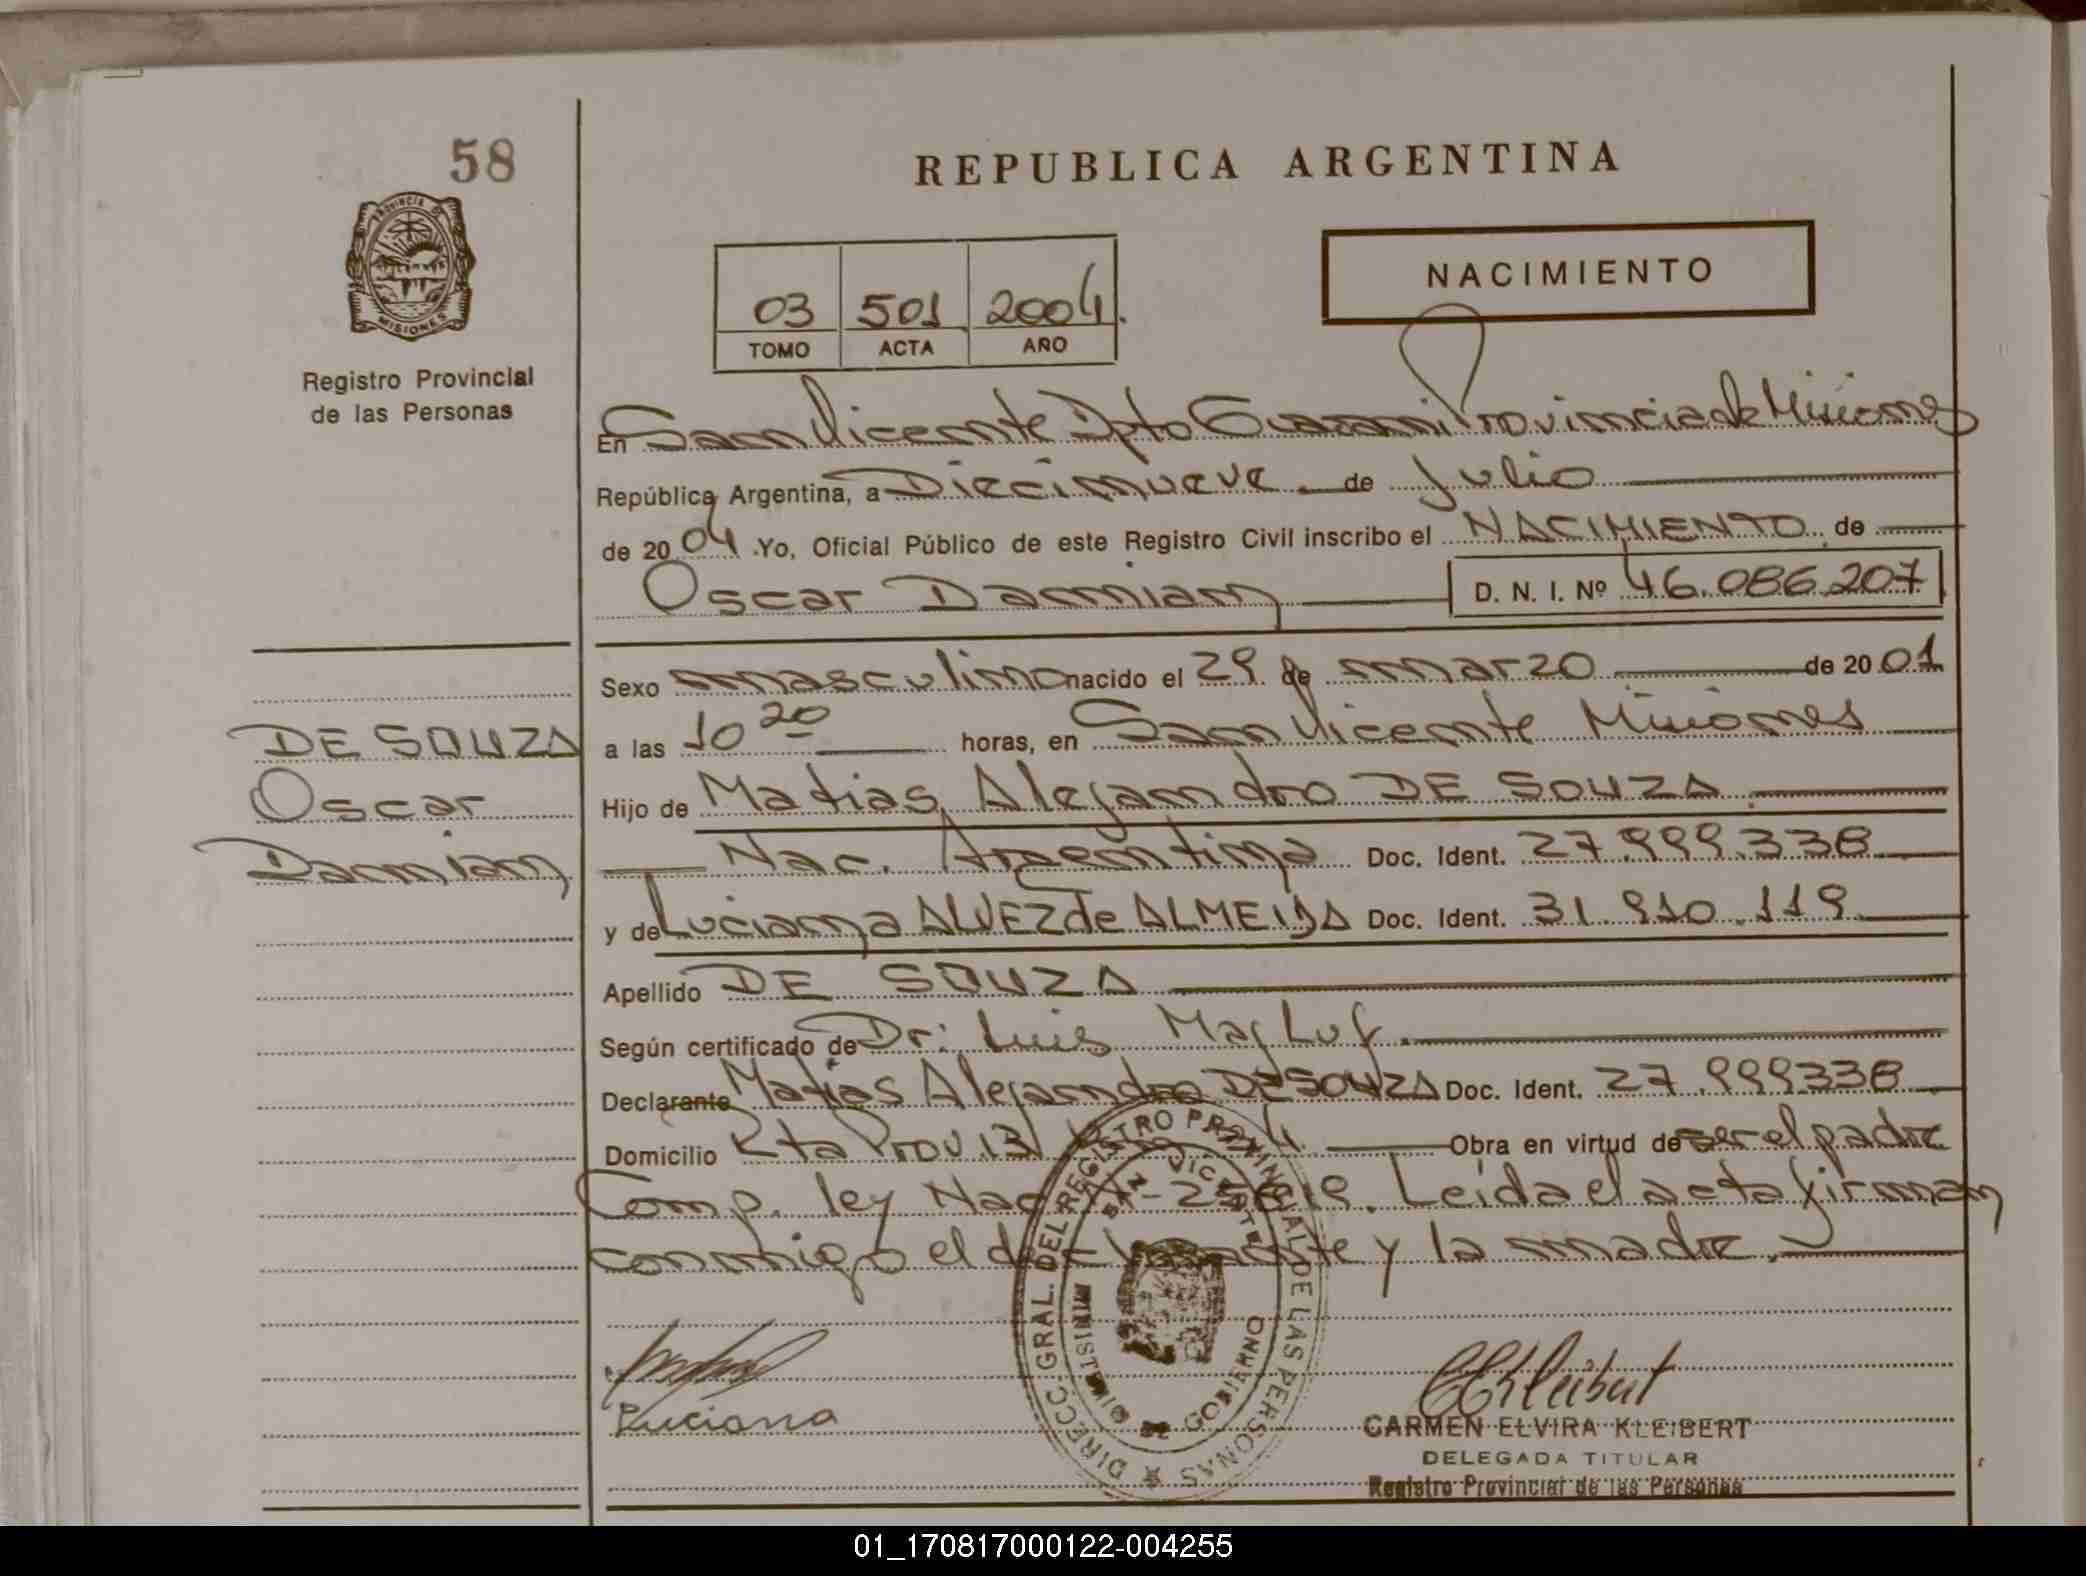 58
REPUBLICA ARGENTINA
PROVINCIA DE
MISIONES
Registro Provincial
de las Personas
03 501 2004.
TOMO ACTA AÑO
NACIMIENTO
En San Vicente Dpto Guarani Provincia de Misiones
República Argentina, a Diecinueve de Julio
de 2004. Yo, Oficial Público de este Registro Civil inscribo el NACIMIENTO de
Oscar Damian D. N. I. Nº 46.086.207
Sexo masculino nacido el 29 de marzo de 2001
DE SOUZA
Oscar
Damian
a las 10 20 horas, en San Vicente Misiones
Hijo de Matias Alejandro DE SOUZA
Nac. Argentina Doc. Ident. 27.999.338
y de Luciana ALVEZ de ALMEIDA Doc. Ident. 31.910.119
Apellido DE SOUZA
Según certificado de Dr: Luis
Declarante Matias Alejandro DE SOUZA Doc. Ident. 27.999338
Domicilio Rta Prov. 13 Obra en virtud de ser el padre
Comp. ley Nac Leida el acta firman
conmigo el declarante y la madre.
Luciana
DIRECC. GRAL. DEL REGISTRO PROVINCIAL DE LAS PERSONAS
SAN VICENTE
MINISTERIO DE GOBIERNO
CARMEN ELVIRA KLEIBERT
DELEGADA TITULAR
Registro Provincial de las Personas
01_170817000122-004255